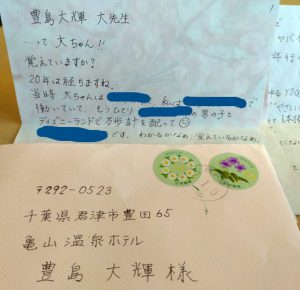 豊島大輝 大先生
…って 大ちゃん!!
覚えていますか?
20年は経ちますね。
当時 大ちゃんは
、私は で
働いていて、もうひとり の男の子と
ディズニーランドで万歩計を配って
です。わかるかなぁ 覚えているかなぁ。
〒292-0523
千葉県君津市豊田65
亀山温泉ホテル
豊島大輝様